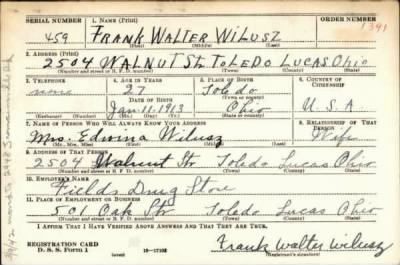 SERIAL NUMBER 1. NAME (Print) ORDER NUMBER
459 FRANK WALTER WILUSZ 1391
(First) (Middle) (Last)
2. ADDRESS (Print)
2504 WALNUT St. TOLEDO LUCAS Ohio
(Number and street or R. F. D. number) (Town) (County) (State)
3. TELEPHONE 4. AGE IN YEARS 5. PLACE OF BIRTH 6. COUNTRY OF CITIZENSHIP
none 27 Toledo
DATE OF BIRTH (Town or county)
Jan. 11. 1913 Ohio U. S. A
(Exchange) (No.) (Mo.) (Day) (Yr.) (State or country)
7. NAME OF PERSON WHO WILL ALWAYS KNOW YOUR ADDRESS 8. RELATIONSHIP OF THAT PERSON
Mrs. Edwina Wilusz Wife
(Mr., Mrs., Miss) (First) (Middle) (Last)
9. ADDRESS OF THAT PERSON
2504 Walnut Str Toledo Lucas Ohio
(Number and street or R. F. D. number) (Town) (County) (State)
10. EMPLOYER'S NAME
Fields Drug Store
11. PLACE OF EMPLOYMENT OR BUSINESS
501 Oak Str Toledo Lucas Ohio
(Number and street or R. F. D. number) (Town) (County) (State)
I AFFIRM THAT I HAVE VERIFIED ABOVE ANSWERS AND THAT THEY ARE TRUE.
REGISTRATION CARD
D. S. S. Form 1 (over) 16-17105 Frank Walter Wilusz
(Registrant's signature)